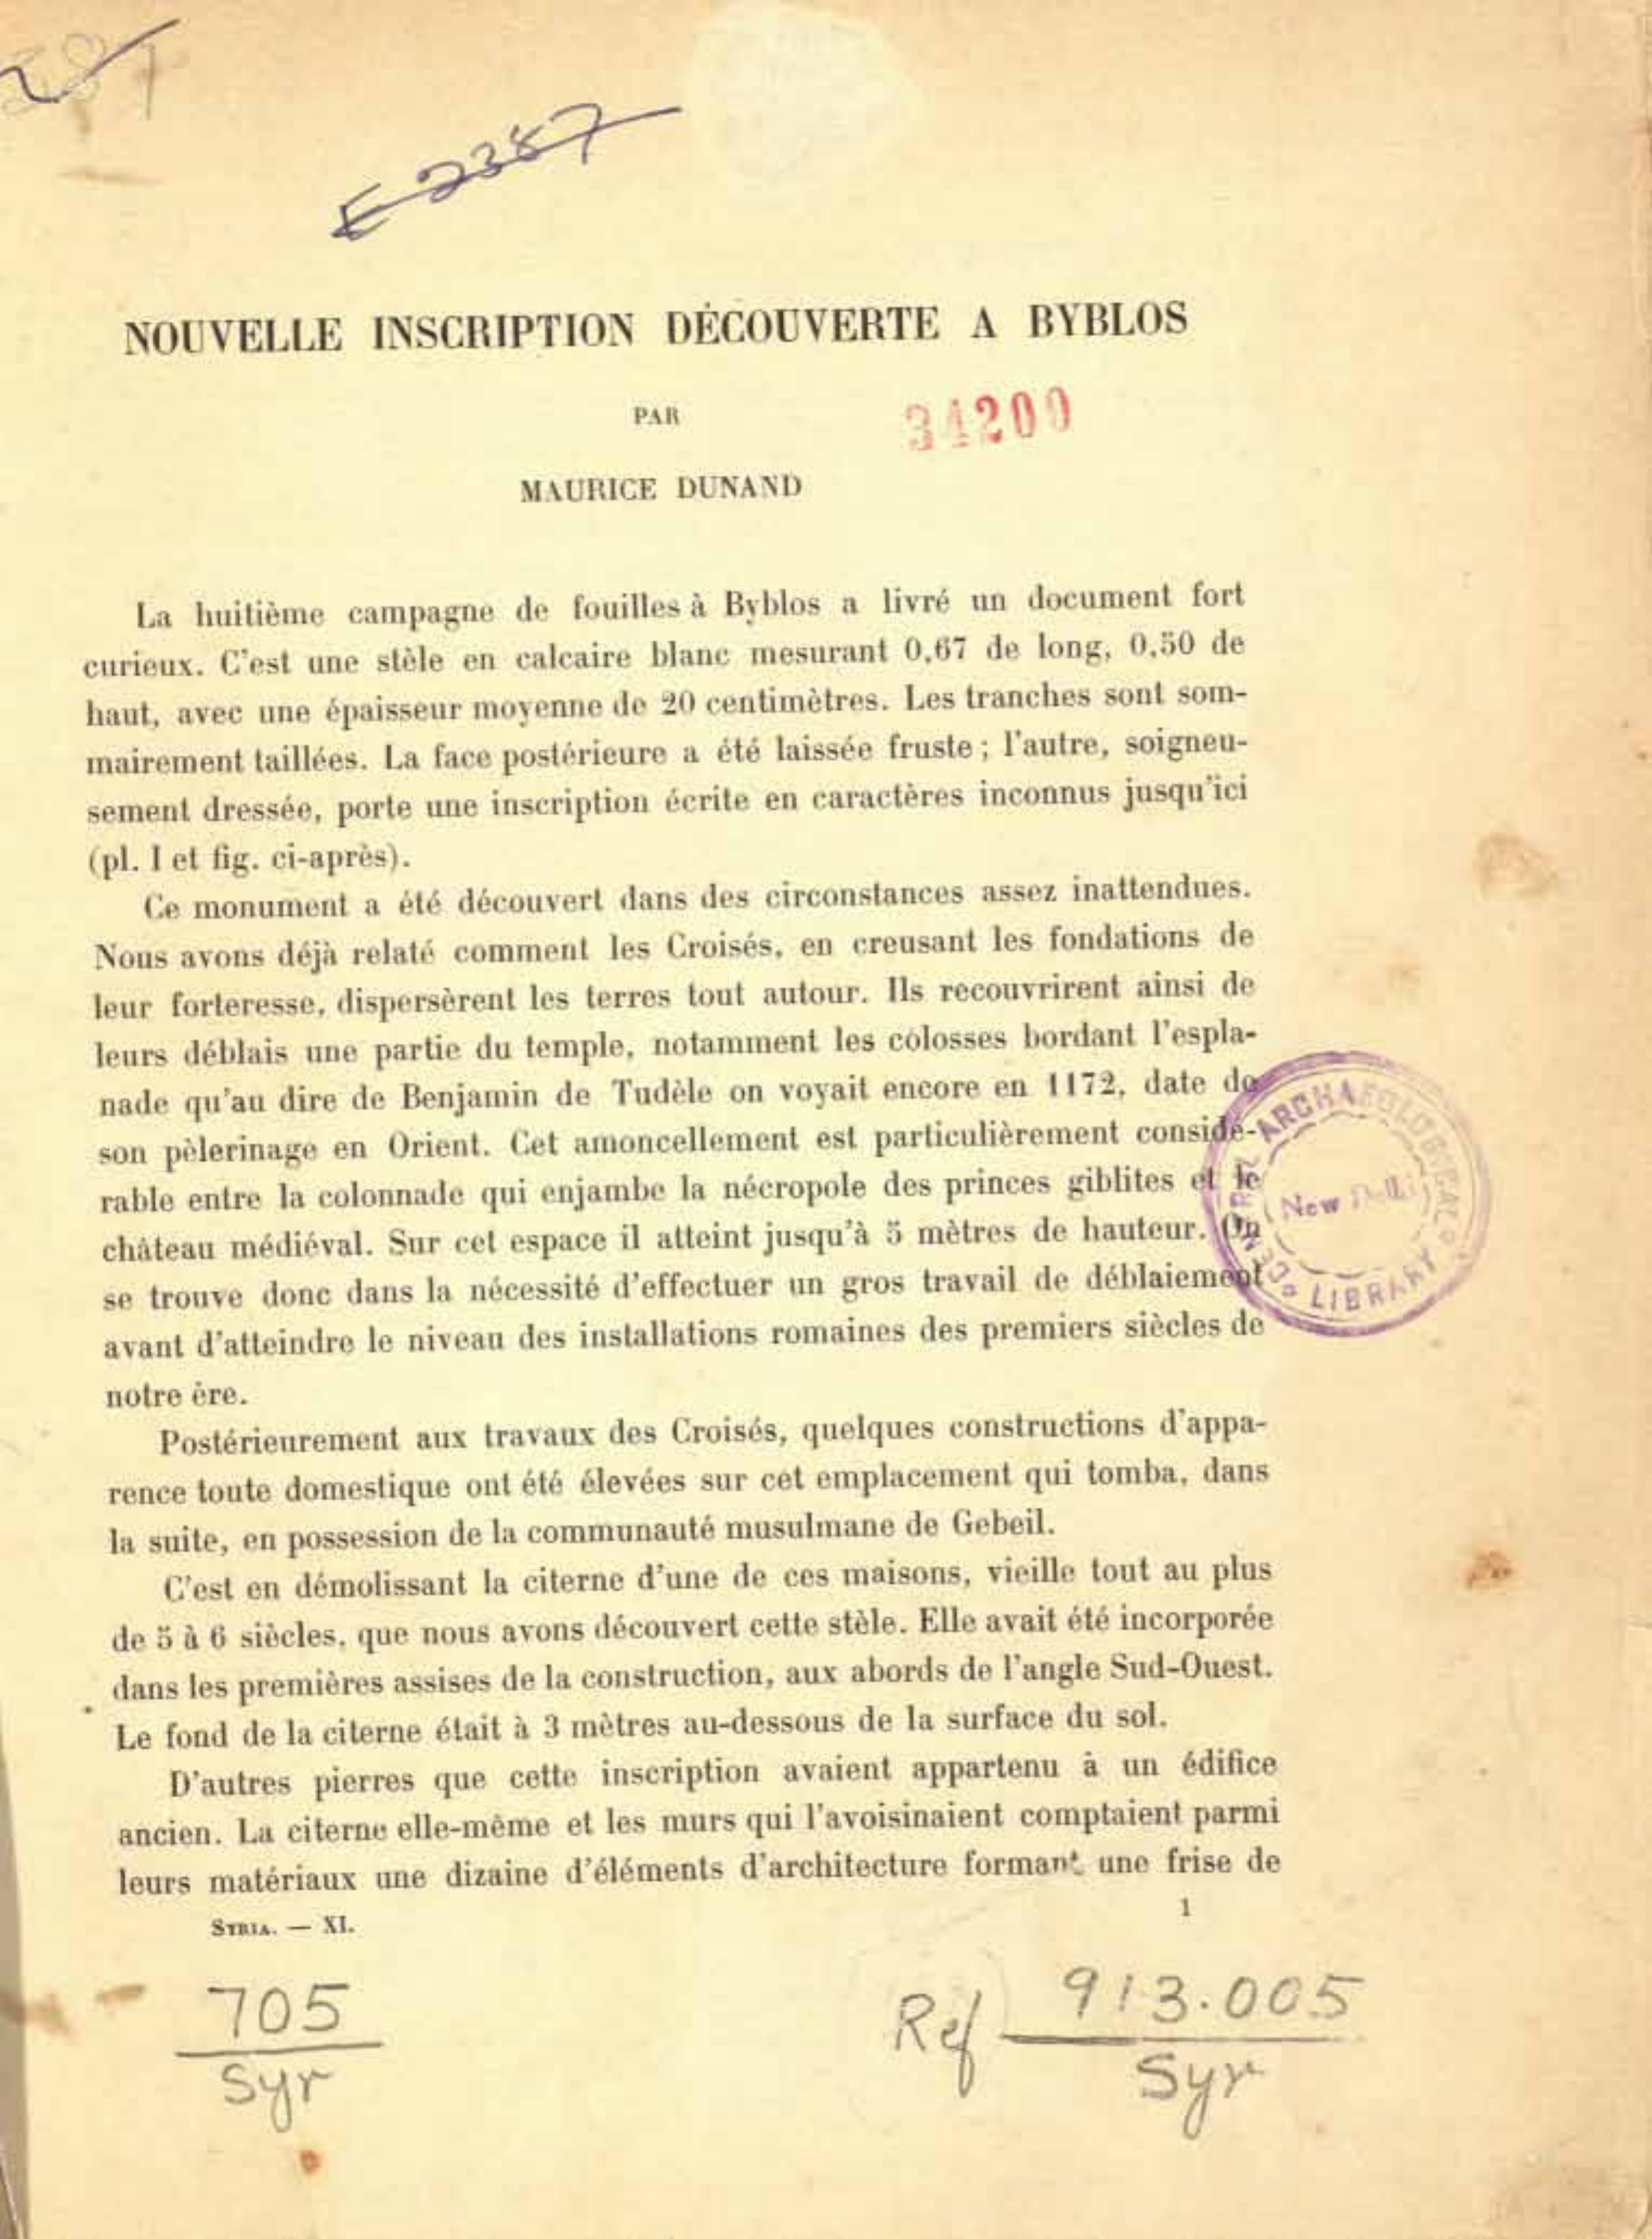 E 2387
NOUVELLE INSCRIPTION DÉCOUVERTE A BYBLOS
PAR
34200
MAURICE DUNAND
La huitième campagne de fouilles à Byblos a livré un document fort
curieux. C'est une stèle en calcaire blanc mesurant 0,67 de long, 0,50 de
haut, avec une épaisseur moyenne de 20 centimètres. Les tranches sont som-
mairement taillées. La face postérieure a été laissée fruste ; l'autre, soigneu-
sement dressée, porte une inscription écrite en caractères inconnus jusqu'ici
(pl. I et fig. ci-après).
Ce monument a été découvert dans des circonstances assez inattendues.
Nous avons déjà relaté comment les Croisés, en creusant les fondations de
leur forteresse, dispersèrent les terres tout autour. Ils recouvrirent ainsi de
leurs déblais une partie du temple, notamment les colosses bordant l'espla-
nade qu'au dire de Benjamin de Tudèle on voyait encore en 1172, date de
son pèlerinage en Orient. Cet amoncellement est particulièrement considé-
rable entre la colonnade qui enjambe la nécropole des princes giblites et le
château médiéval. Sur cet espace il atteint jusqu'à 5 mètres de hauteur. On
se trouve donc dans la nécessité d'effectuer un gros travail de déblaiement
avant d'atteindre le niveau des installations romaines des premiers siècles de
notre ère.
Postérieurement aux travaux des Croisés, quelques constructions d'appa-
rence toute domestique ont été élevées sur cet emplacement qui tomba, dans
la suite, en possession de la communauté musulmane de Gebeil.
C'est en démolissant la citerne d'une de ces maisons, vieille tout au plus
de 5 à 6 siècles, que nous avons découvert cette stèle. Elle avait été incorporée
dans les premières assises de la construction, aux abords de l'angle Sud-Ouest.
Le fond de la citerne était à 3 mètres au-dessous de la surface du sol.
D'autres pierres que cette inscription avaient appartenu à un édifice
ancien. La citerne elle-même et les murs qui l'avoisinaient comptaient parmi
leurs matériaux une dizaine d'éléments d'architecture formant une frise de
SYRIA. — XI.
1
CENTRAL ARCHAEOLOGICAL
New Delhi
LIBRARY
705
Syr
Ref 913.005
Syr